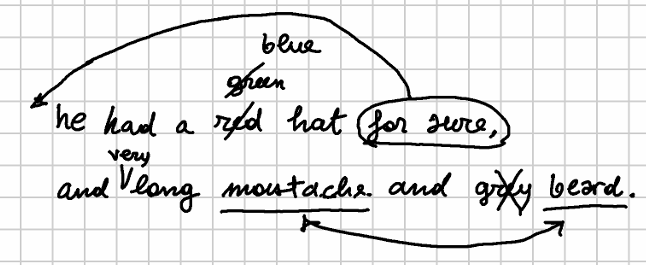 blue
green
he had a red hat for sure,
very
and long moustache and grey beard.